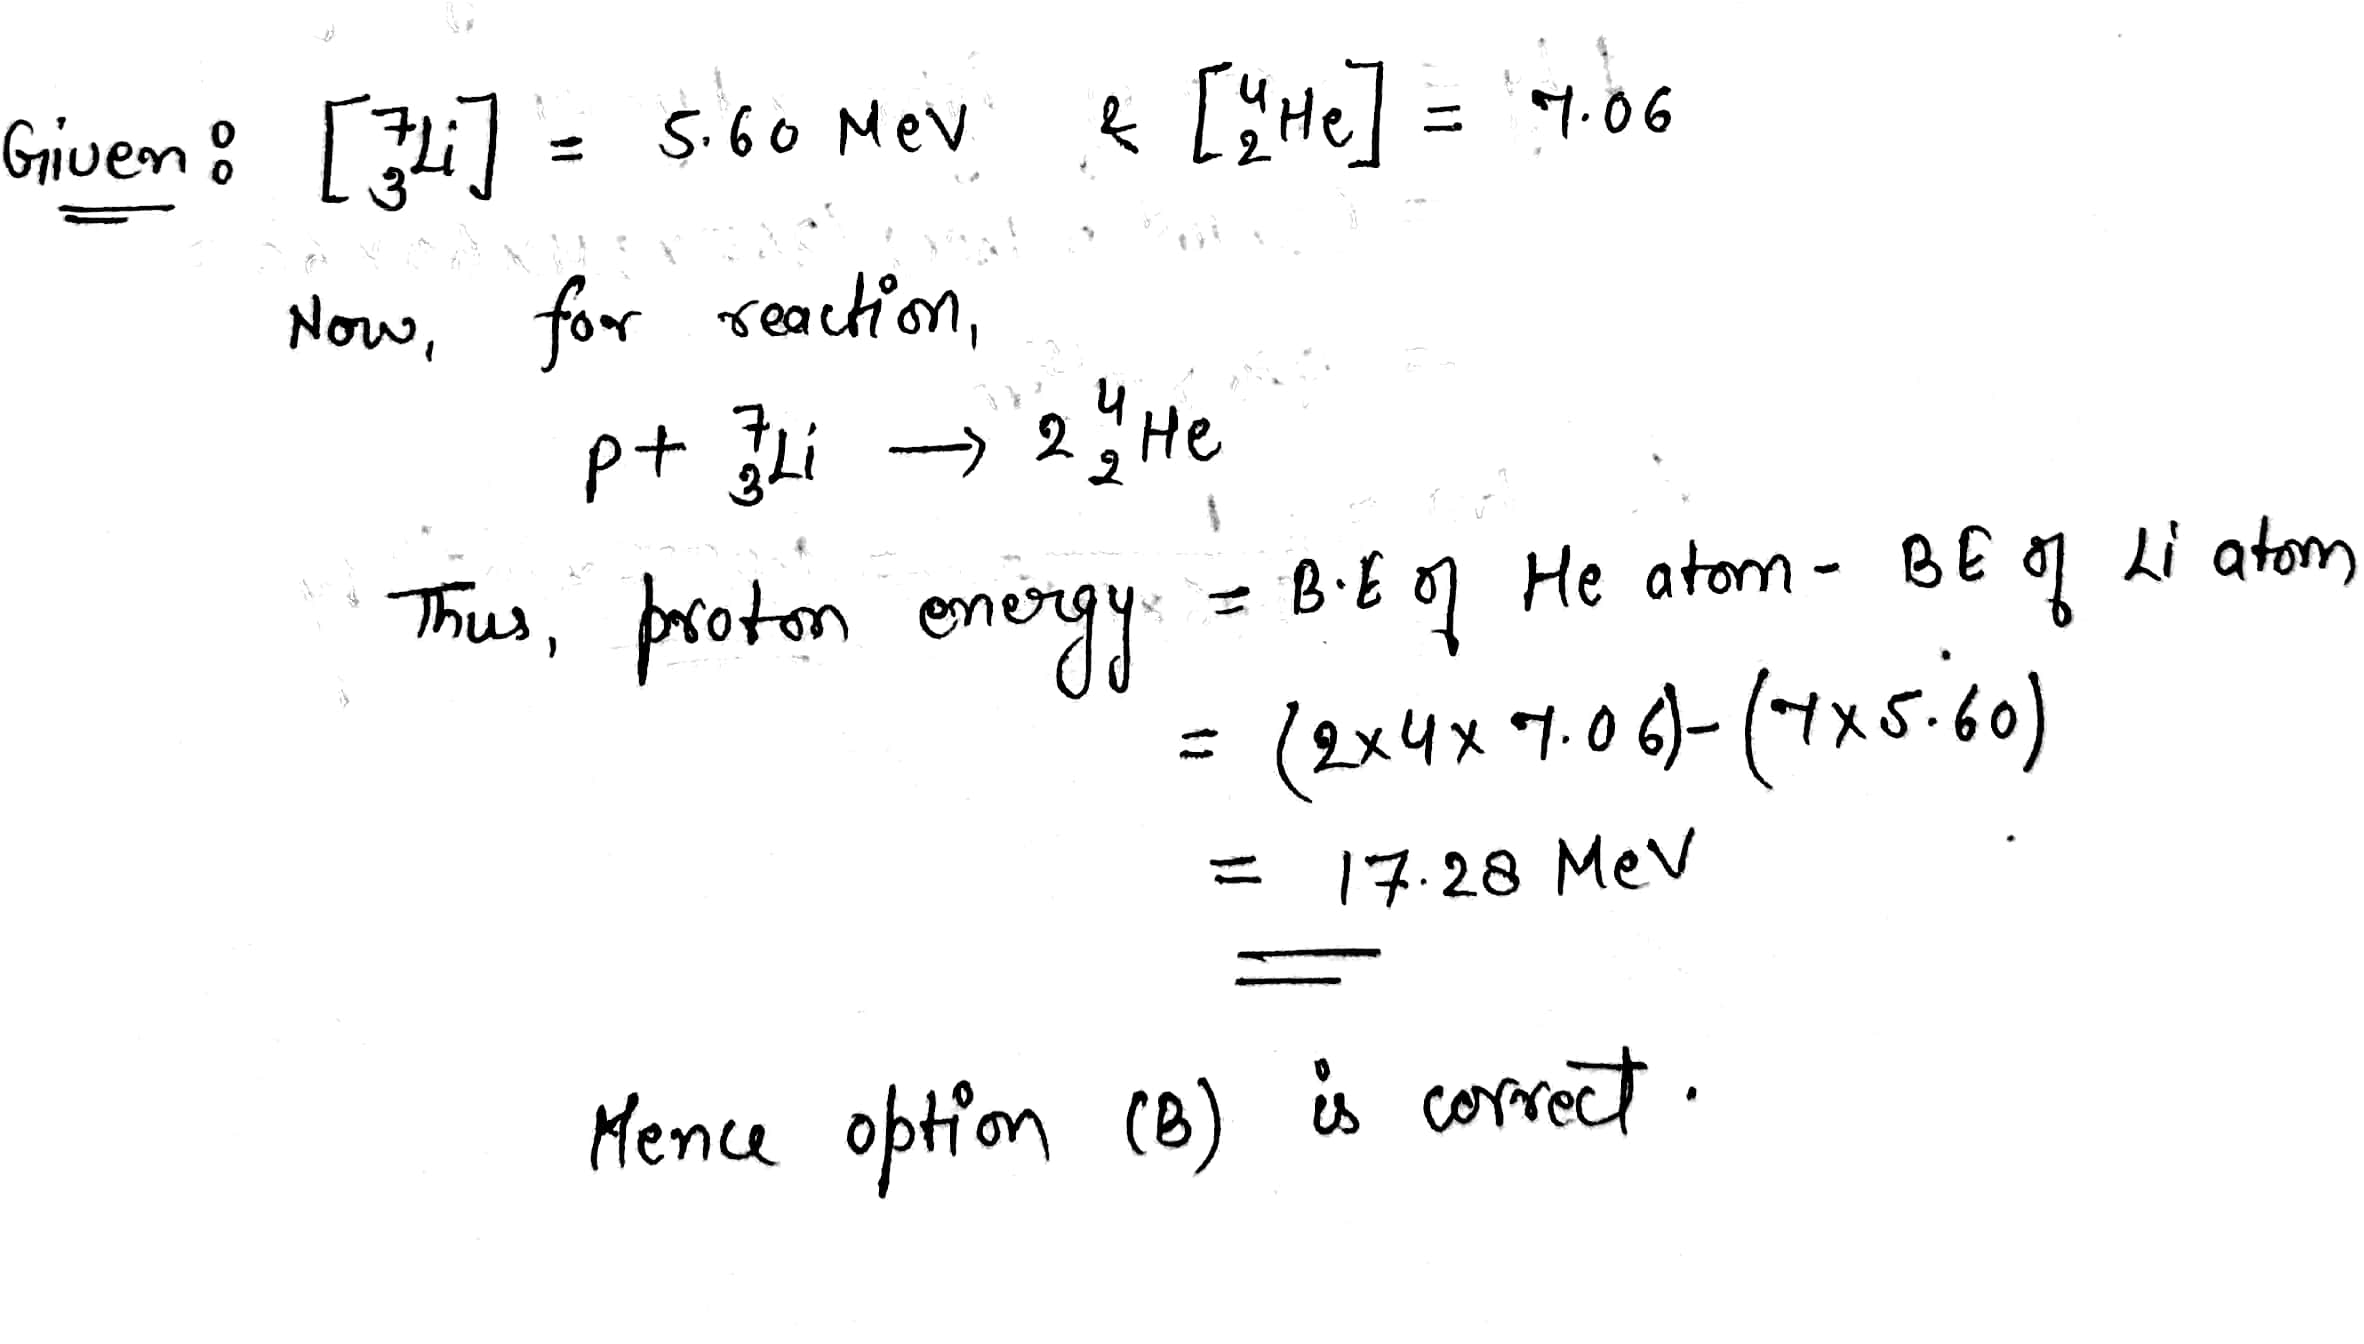 Given: [⁷₃Li] = 5.60 MeV & [⁴₂He] = 7.06
Now, for reaction,
p + ⁷₃Li → 2 ⁴₂He
Thus, proton energy = B.E of He atom - BE of Li atom
= (2x4x 7.06) - (7x5.60)
= 17.28 MeV
Hence option (B) is correct.